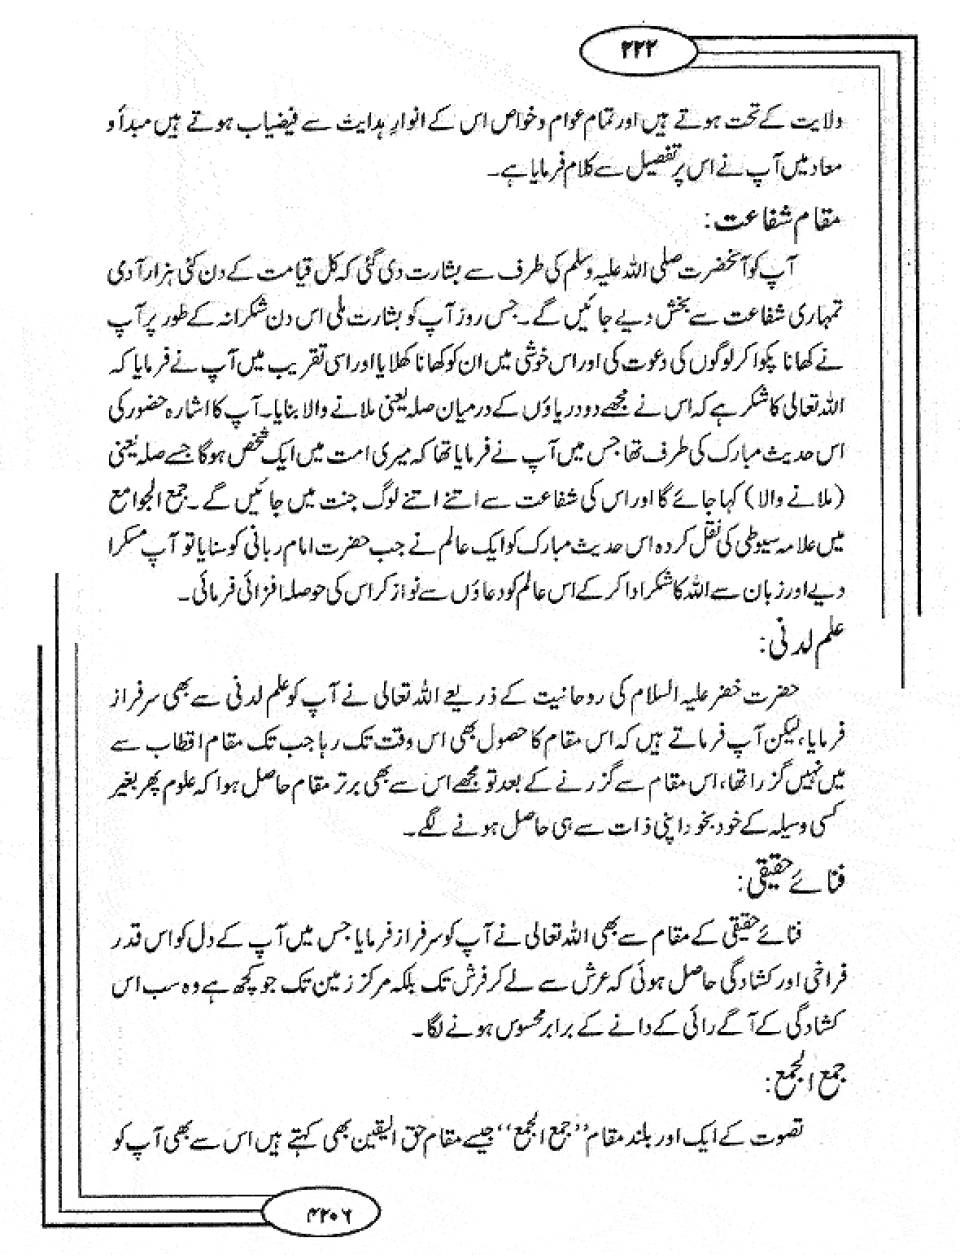 ۲۲۲
ولایت کے تحت ہوتے ہیں اور تمام عوام وخواص اس کے انوارِ ہدایت سے فیضیاب ہوتے ہیں مبدأ و
معاد میں آپ نے اس پر تفصیل سے کلام فرمایا ہے۔
مقام شفاعت:
آپ کو آنحضرت صلی اللہ علیہ وسلم کی طرف سے بشارت دی گئی کہ کل قیامت کے دن کئی ہزار آدمی
تمہاری شفاعت سے بخش دیے جائیں گے۔ جس روز آپ کو بشارت ملی اس دن شکرانہ کے طور پر آپ
نے کھانا پکوا کر لوگوں کی دعوت کی اور اس خوشی میں ان کو کھانا کھلایا اور اسی تقریب میں آپ نے فرمایا کہ
اللہ تعالی کا شکر ہے کہ اس نے مجھے دو دریاؤں کے درمیان صلہ یعنی ملانے والا بنایا۔ آپ کا اشارہ حضور کی
اس حدیث مبارک کی طرف تھا جس میں آپ نے فرمایا تھا کہ میری امت میں ایک شخص ہوگا جسے صلہ یعنی
(ملانے والا) کہا جائے گا اور اس کی شفاعت سے اتنے اتنے لوگ جنت میں جائیں گے۔ جمع الجوامع
میں علامہ سیوطی کی نقل کردہ اس حدیث مبارک کو ایک عالم نے جب حضرت امام ربانی کو سنایا تو آپ مسکرا
دیے اور زبان سے اللہ کا شکر ادا کر کے اس عالم کو دعاؤں سے نواز کر اس کی حوصلہ افزائی فرمائی۔
علم لدنی:
حضرت خضر علیہ السلام کی روحانیت کے ذریعے اللہ تعالی نے آپ کو علم لدنی سے بھی سرفراز
فرمایا، لیکن آپ فرماتے ہیں کہ اس مقام کا حصول بھی اس وقت تک رہا جب تک مقام اقطاب سے
میں نہیں گزرا تھا، اس مقام سے گزرنے کے بعد تو مجھے اس سے بھی برتر مقام حاصل ہوا کہ علوم پھر بغیر
کسی وسیلہ کے خود بخود اپنی ذات سے ہی حاصل ہونے لگے۔
فنائے حقیقی:
فنائے حقیقی کے مقام سے بھی اللہ تعالی نے آپ کو سرفراز فرمایا جس میں آپ کے دل کو اس قدر
فراخی اور کشادگی حاصل ہوئی کہ عرش سے لے کر فرش تک بلکہ مرکز زمین تک جو کچھ ہے وہ سب اس
کشادگی کے آگے رائی کے دانے کے برابر محسوس ہونے لگا۔
جمع الجمع:
تصوت کے ایک اور بلند مقام ''جمع الجمع'' جسے مقام حق الیقین بھی کہتے ہیں اس سے بھی آپ کو
۴۲۰۶